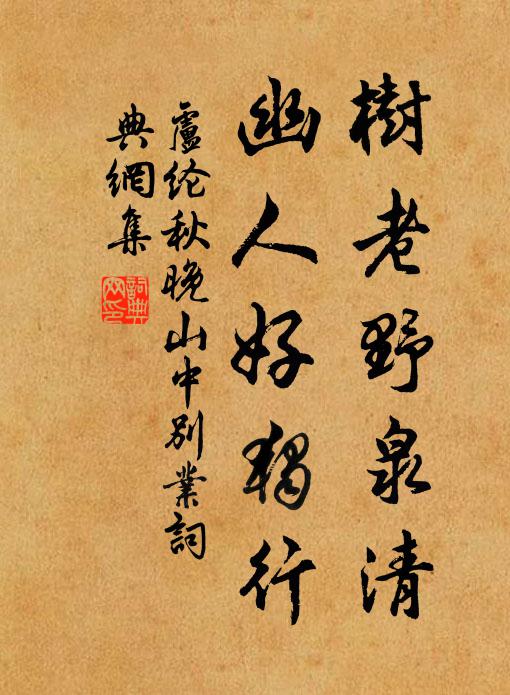 樹老野泉清
幽人好獨行
盧纶秋晚山中別業詞
典網集
詞典网印